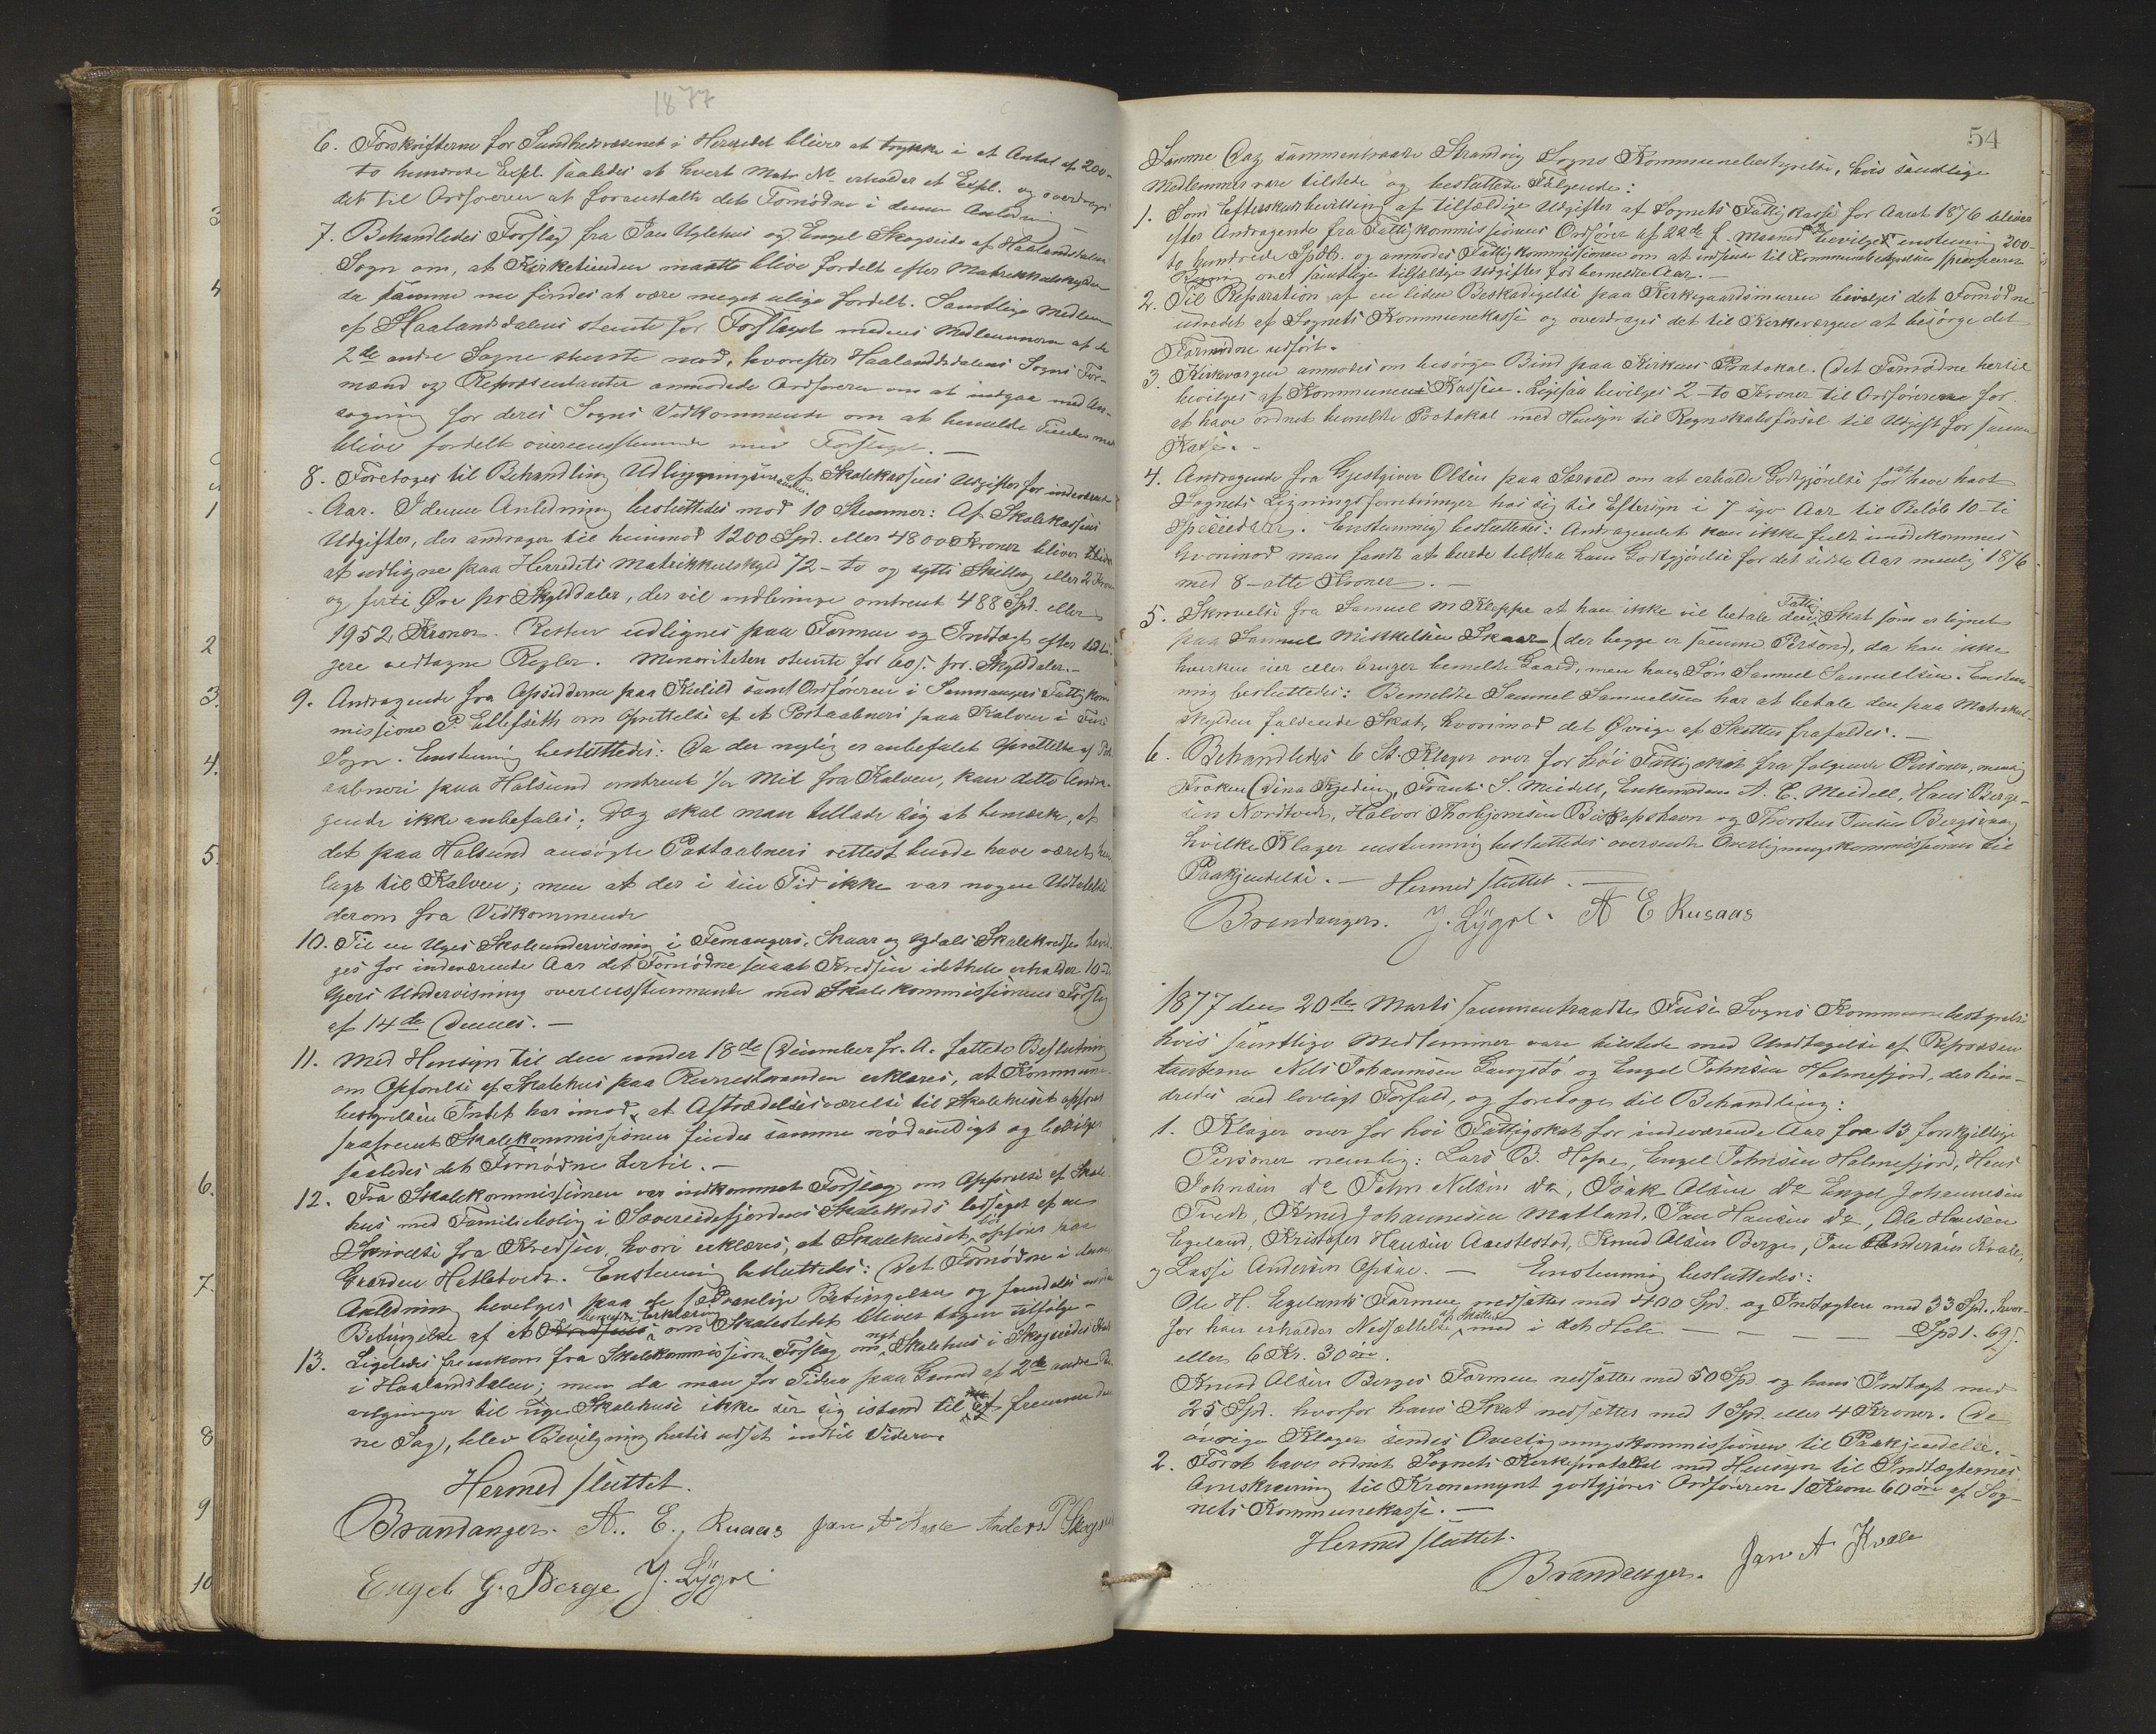 1877
6. Forskrifterne for Sundhedsvæsenet i Herredet bliver at trykke i et Antal af 200-
to hundrede Expl. saaledes at hvert Matr. No. erholder et Expl. og overdrages
det til Ordføreren at foranstalte det Fornødne i denne Anledning
7. Behandledes Forslag fra Jan Uglehus og Engel Skogseide af Haalandsdalen
Sogn om, at Kirketienden maatte blive fordelt efter Matrikkulskylden
da samme nu findes at være meget ulige fordelt. Samtlige Medlem
af Haalandsdalens stemte for Forslaget medens Medlemmerne af de
2de andre Sogne stemte mod, hvorefter Haalandsdalens Sogns For-
mænd og Repræsentanter anmodede Ordføreren om at indgaa med An-
søgning for deres Sogns Vedkommende om at bemeldte Tiende maa
blive fordelt overensstemmende med Forslaget. —
8. Foretoges til Behandling Udligningen af Skolekassens Udgifter for indeværende
Aar. I denne Anledning besluttedes mod 10 Stemmer: Af Skolekassens
Udgifter, der andrager til henimod 1200 Spd. eller 4800 Kroner bliver
at udligne paa Herredets Matrikkulskyld 72 - to og sytti Skilling eller 2 Kroner
og forti Øre pr Skylddaler, der vil indbringe omtrent 488 Spd. eller
1952 Kroner. Resten udlignes paa Formue og Indtægt efter tidli-
gere vedtagne Regler. Minoriteten stemte for 60 s. pr. Skylddaler. —
9. Andragende fra Opsidderne paa Kulild samt Ordføreren i Samnangers Fattigkom
missione P. Ellefseth om Oprettelse af et Postaabneri paa Kalven i Fuse
Sogn. Enstemmig besluttedes: Da der nylig er anbefalet Oprettelse af Post
aabneri paa Halsund omtrent 1/2 Mil fra Kalven, kan dette Andra-
gende ikke anbefales; Dog skal man tillade sig at bemærke, at
det paa Halsund ansøgte Postaabneri rettest burde have været hen
lagt til Kalven; men at der i sin Tid ikke var nogen Udtalelse
derom fra Vedkommende
10. Til en Uges Skoleundervisning i Femangers, Skaar og Ygdals Skolekredse bevil-
ges for indeværende Aar det Fornødne saaat Kredsen idethele erholder 10-ti
Ugers Undervisning overensstemmende med Skolekommissionens Forslag
af 14de Dennes. —
11. Med Hensyn til den under 18de December f. A. fattede Beslutning
om Opførelse af Skolehus paa Revnestranden erklæres, at Kommune-
bestyrelsen Intet har imod, at Aftrædelsesværelse til Skolehuset opføres
saafremt Skolekommissionen finder samme nødvendigt og bevilges
saaledes det Fornødne hertil. —
12. Fra Skolekommissionen var indkommet Forslag om Opførelse af Skole
hus med Familiebolig i Sævereidefjordens Skolekreds ledsaget af en
Skrivelse fra Kredsen, hvori erklæres, at Skolehuset bør opføres paa
Gaarden Hetletvedt. Enstemmig besluttedes: Det Fornødne i denne
Anledning bevilges paa de sædvanlige Betingelser og
Betingelse af at Kredsens bemeldte Erklæring om Skolestedet bliver tagen tilfølge —
13. Ligeledes fremkom fra Skolekommission Forslag om nyt Skolehus i Skogseides Kreds
i Haalandsdalen; men da man for Tiden paa Grund af 2de andre Be
vilgninger til nye Skolehuse ikke ser sig istand til at fremme den
ne Sag, blev Bevilgning hertil udsat indtil Videre.
Hermed sluttet.
Brandanger. A. E. Rusaas Jan A Kvale Anders P Skogseide
Engel G. Berge J. Lygre
54
Samme Dag sammentraadte Strandvig Sogns Kommunebestyrelse, hvis samtlige
Medlemmer vare tilstede og besluttede Følgende:
1. Som Efterskudsbevilling af tilfældige Udgifter af Sognets Fattigkasse for Aaret 1876 bliver
efter Andragende fra Fattigkommissionens Ordfører af 22de f. Maaned bevilget enstemmig 200-
to hundrede Spdlr. og anmodes Fattigkommissionen om at indsende til Kommunebestyrelsen specificeret
Regning over samtlige tilfældige Udgifter for bemeldte Aar. —
2. Til Reparation af en liden Beskadigelse paa Kirkegaardsmuren bevilges det Fornødne
udredet af Sognets Kommunekasse og overdrages det til Kirkeværgen at besørge det
Fornødne udført.
3. Kirkeværgen anmodes om besørge Bind paa Kirkens Protokol. Det Fornødne hertil
bevilges af Kommunens Kasse. Ligesaa bevilges 2-to Kroner til Ordføreren for
at have ordnet bemeldte Protokol med Hensyn til Regnskabsførsel til Udgift for samme
Kasse. —
4. Andragende fra Gjestgiver Olsen paa Særvold om at erholde Godtgjørelse for at have havt
Sognets Ligningsforretninger hos sig til Eftersyn i 7 syv Aar til Beløb 10-ti
Speciedaler. Enstemmig besluttedes: Andragendet kan ikke fuldt imødekommes
hvorimod man fandt at burde tilstaa ham Godtgjørelse for det sidste Aar nemlig 1876
med 8-otte Kroner. —
5. Skrivelse fra Samuel M Kleppe at han ikke vil betale den Fattig Skat som er lignet
paa Samuel Mikkelsen Skaar (der begge er samme Person), da han ikke
hverken eier eller bruger bemeldte Gaard, men hans Søn Samuel Samuelsen. Enstem-
mig besluttedes: Bemeldte Samuel Samuelsen har at betale den paa Matrikul-
skylden faldende Skat, hvorimod det Øvrige af Skatten frafaldes. —
6. Behandledes 6 St. Klager over for høi Fattigskat fra følgende Personer, nemlig
Frøken Dina Kjeding, Frants S. Meidell, Enkemadam A. C. Meidell, Hans Berge-
sen Nordtvedt, Halvor Thorbjørnsen Bispshavn og Thorsten Tersen Bergsvaag
hvilke Klager enstemmig besluttedes oversendte Overligningskommissionen til
Paakjendelse. — Hermed sluttet. —
Brandanger. J. Lygre. A E Rusaas
1877 den 20de Marts sammentraadte Fuse Sogns Kommunebestyrelse
hvis samtlige Medlemmer vare tilstede med Undtagelse af Repræsen
tanterne Nils Johannesen Gangstø og Engel Johnsen Holmefjord, der hin-
dredes ved lovligt Forfald, og foretoges til Behandling:
1. Klager over for høi Fattigskat for indeværende Aar fra 13 forskjellige
Personer nemlig: Lars B. Hope, Engel Johnsen Holmefjord, Hans
Johnsen do John Nilsen do, Isak Olsen do Engel Johannesen
Tvedt, Knud Johannesen Matland, Jan Hansen do, Ole Hansen
Egeland, Kristofer Hansen, Knud Olsen Berge, Jan Andersen Kvale,
og Lasse Andersen Opsae. — Enstemmig besluttedes:
Ole H. Egelands Formue nedsættes med 400 Spd. og Indtægten med 33 Spd., hvor-
for han erholder Nedsættelse af Skatten med i det Hele — — — — Spd 1. 69 s.
eller 6 Kr. 30 øre.
Knud Olsen Berges Formue nedsættes med 50 Spd. og hans Indtægt med
25 Spd. hvorfor hans Skat nedsættes med 1 Spd. eller 4 Kroner. De
øvrige Klager sendes Overligningskommissionen til Paakjendelse. —
2. For at have ordnet Sognets Kirkeprotokol med Hensyn til Indtægternes
Omskrivning til Kronemynt godtgjøres Ordføreren 1 Krone 60 øre af Sog-
nets Kommunekasse. —
Hermed sluttet.
Brandanger. Jan A Kvale